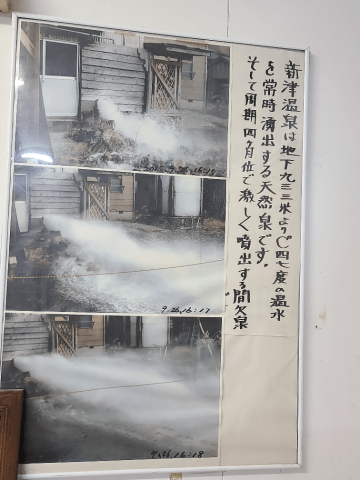 新津温泉は地下九三三米より℃四七度の温水
を常時湧出する天然泉です。
そして周期四ヶ月位で激しく噴出する間欠泉
9.26.16:17
9.26.16:18